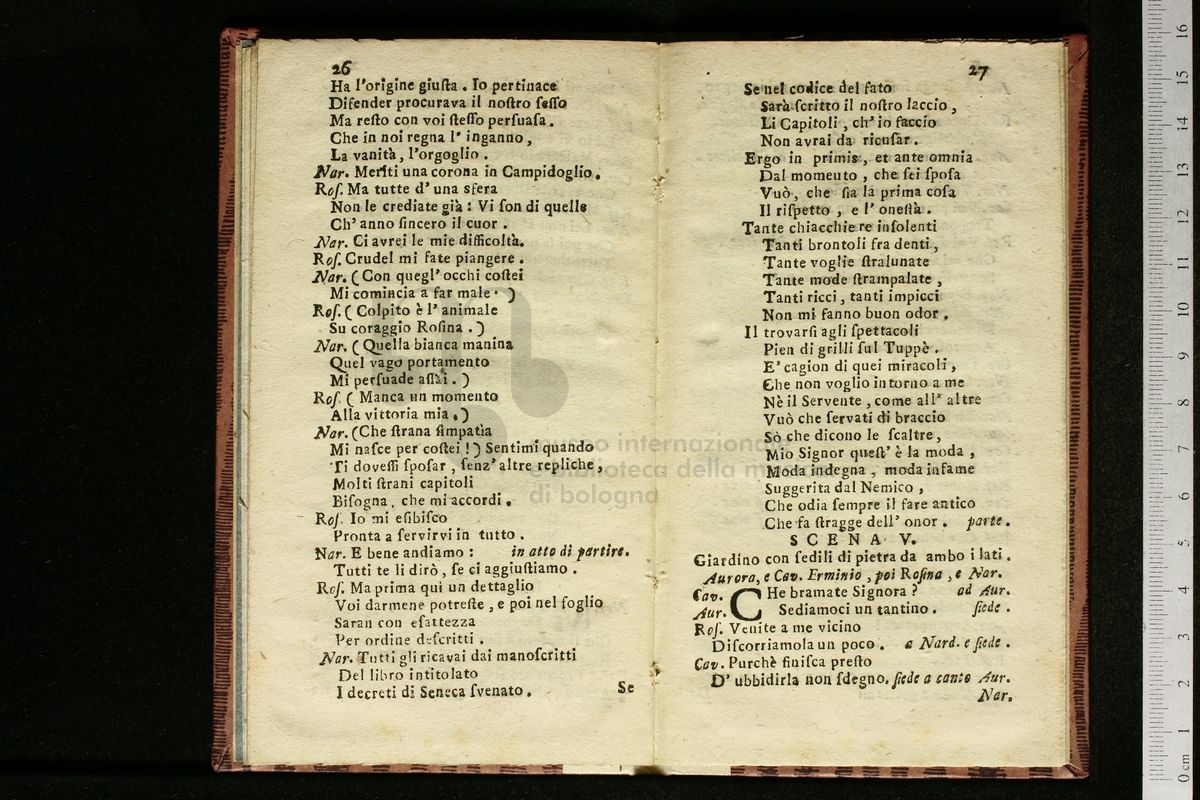 26
Ha l'origine giuſta . Io pertinace
Difender procurava il noſtro ſeſſo
Ma reſto con voi ſteſſo perſuaſa .
Che in noi regna l' inganno ,
La vanità , l'orgoglio .
Nar. Meriti una corona in Campidoglio .
Roſ. Ma tutte d' una sfera
Non le crediate già : Vi ſon di quelle
Ch' anno ſincero il cuor .
Nar. Ci avrei le mie difficoltà.
Roſ. Crudel mi fate piangere .
Nar. ( Con quegl' occhi coſtei
Mi comincia a far male . )
Roſ. ( Colpito è l' animale
Su coraggio Roſina . )
Nar. ( Quella bianca manina
Quel vago portamento
Mi perſuade aſſai . )
Roſ. ( Manca un momento
Alla vittoria mia . )
Nar. (Che ſtrana ſimpatìa
Mi naſce per coſtei ! ) Sentimi quando
Ti doveſſi ſpoſar , ſenz' altre repliche ,
Molti ſtrani capitoli
Biſogna , che mi accordi .
Roſ. Io mi eſibiſco
Pronta a ſervirvi in tutto .
Nar. E bene andiamo : in atto di partire.
Tutti te li dirò , ſe ci aggiuſtiamo .
Roſ. Ma prima qui un dettaglio
Voi darmene potreſte , e poi nel foglio
Saran con eſattezza
Per ordine deſcritti .
Nar. Tutti gli ricavai dai manoſcritti
Del libro intitolato
I decreti di Seneca ſvenato .
Se
27
Se nel codice del fato
Sarà ſcritto il noſtro laccio ,
Li Capitoli , ch' io faccio
Non avrai da ricuſar .
Ergo in primis , et ante omnia
Dal momento , che ſei ſpoſa
Vuò , che ſia la prima coſa
Il riſpetto , e l' oneſtà .
Tante chiacchiere inſolenti
Tanti brontoli fra denti ,
Tante voglie ſtralunate
Tante mode ſtrampalate ,
Tanti ricci , tanti impicci
Non mi fanno buon odor .
Il trovarſi agli ſpettacoli
Pien di grilli ſul Tuppè .
E' cagion di quei miracoli ,
Che non voglio intorno a me
Nè il Servente , come all' altre
Vuò che ſervati di braccio
Sò che dicono le ſcaltre ,
Mio Signor queſt' è la moda ,
Moda indegna , moda infame
Suggerita dal Nemico ,
Che odia ſempre il fare antico
Che fa ſtragge dell' onor . parte .
SCENA V.
Giardino con ſedili di pietra da ambo i lati .
Aurora, e Cav. Erminio , poi Roſina , e Nar.
Cav. CHe bramate Signora ? ad Aur.
Aur. Sediamoci un tantino . ſiede .
Roſ. Venite a me vicino
Diſcorriamola un poco . a Nard. e ſiede .
Cav. Purchè finiſca preſto
D' ubbidirla non ſdegno. ſiede a canto Aur.
Nar.
gruppo internazionale
biblioteca della m
di bologna
0 cm 1 2 3 4 5 6 7 8 9 10 11 12 13 14 15 16